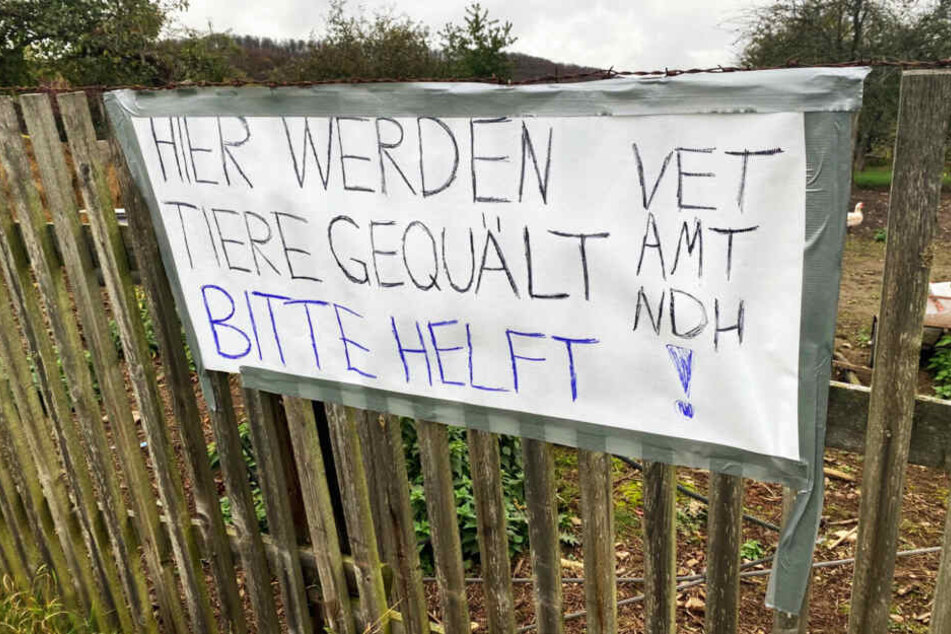 HIER WERDEN
TIERE GEQUÄLT
BITTE HELFT
VET
AMT
NDH
!